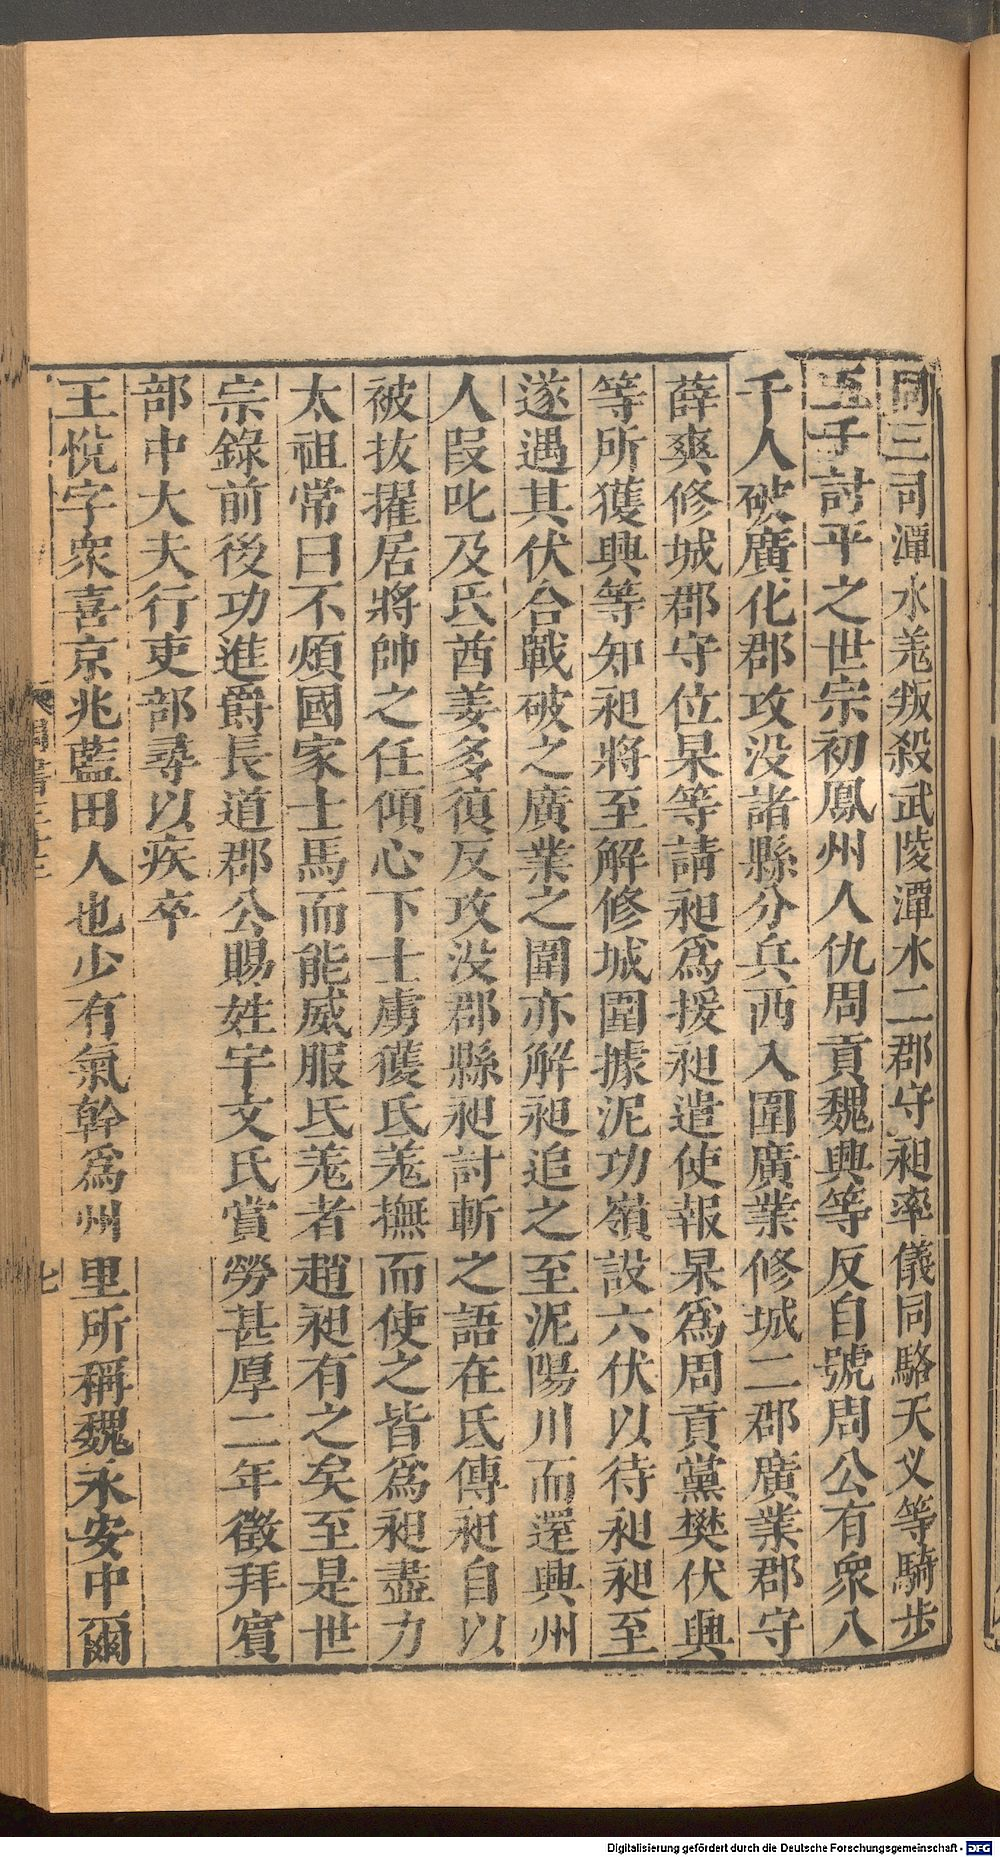 同三司潭水羗叛殺武陵潭水二郡守昶率儀同駱天乂等騎步
五千討平之世宗初鳳州人仇周貢魏興等反自號周公有衆八
千人破廣化郡攻没諸縣分兵西入圍廣業修城二郡廣業郡守
薛爽修城郡守位杲等請昶爲援昶遣使報杲爲周貢黨樊伏興
等所獲興等知昶將至解修城圍據泥功嶺設六伏以待昶昶至
遂遇其伏合戰破之廣業之圍亦解昶追之至泥陽川而還興州
人叚叱及氐酋姜多復反攻没郡縣昶討斬之語在氐傳昶自以
被拔擢居將帥之任傾心下士虜獲氐羗撫而使之皆爲昶盡力
太祖常曰不煩國家士馬而能威服氐羗者趙昶有之矣至是世
宗錄前後功進爵長道郡公賜姓宇文氏賞勞甚厚二年徵拜賓
部中大夫行吏部尋以疾卒
王悅字衆喜京兆藍田人也少有氣幹爲州里所稱魏永安中爾
七
Digitalisierung gefördert durch die Deutsche Forschungsgemeinschaft - DFG